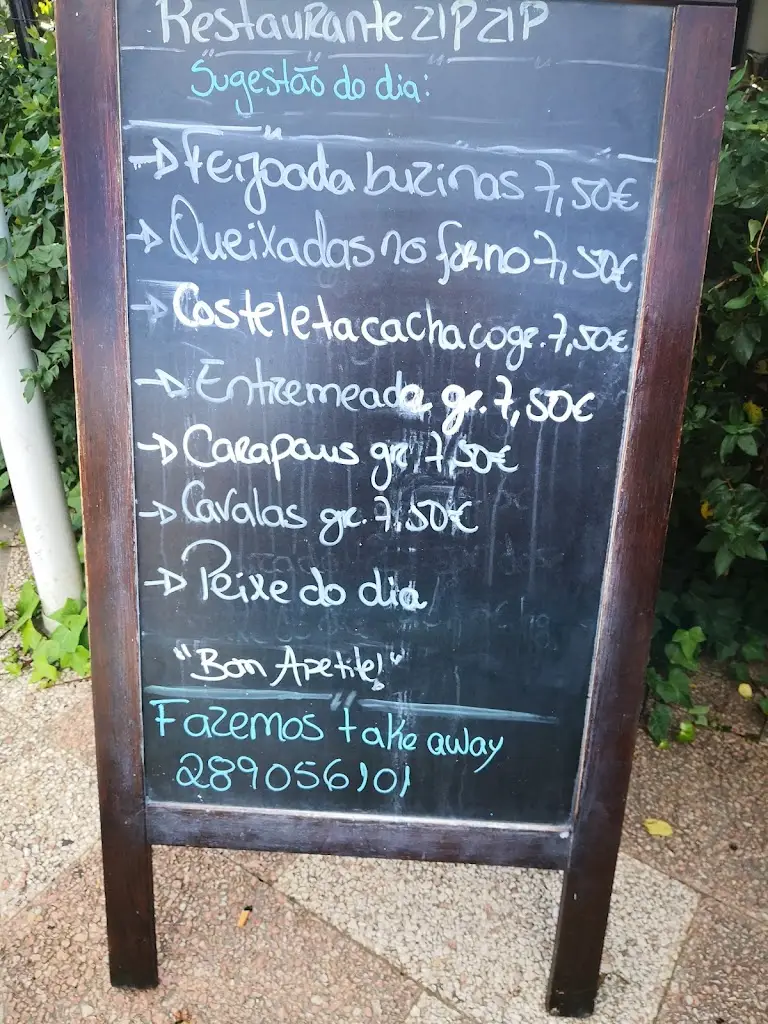 Restaurante ZIP ZIP
Sugestão do dia:
→ Feijoada buzinas 7,50€
→ Queixadas no forno 7,50€
→ Costeleta cachaço gr. 7,50€
→ Entremeada gr. 7,50€
→ Carapaus gr. 7,50€
→ Cavalas gr. 7,50€
→ Peixe do dia
"Bon Apetite!"
Fazemos take away
289056101